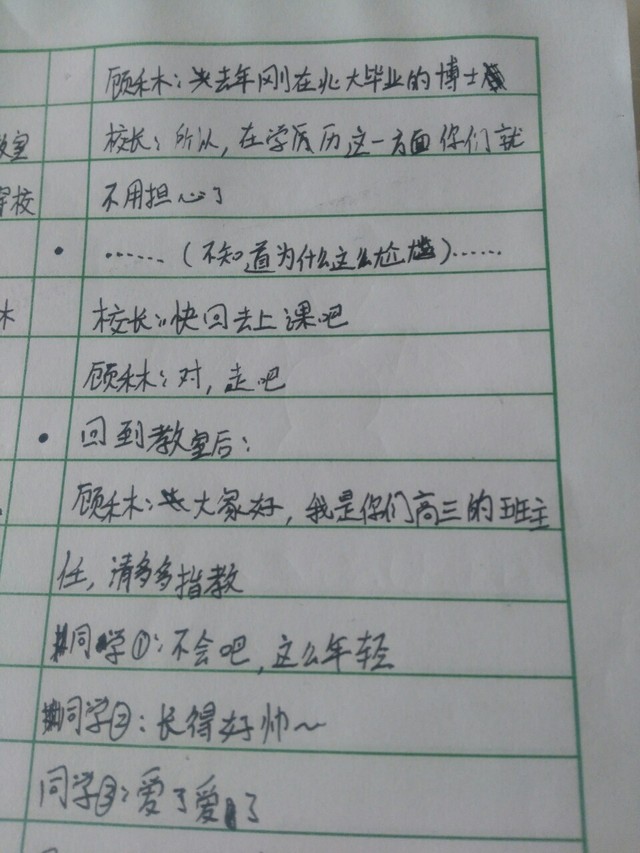 顾禾木：去年刚在北大毕业的博士
教室 校长：所以，在学历这一方面你们就
学校 不用担心了
• ……（不知道为什么这么尴尬）……
木 校长：快回去上课吧
顾禾木：对，走吧
• 回到教室后：
顾禾木：大家好，我是你们高三的班主
任，请多多指教
同学①：不会吧，这么年轻
同学②：长得好帅～
同学③：爱了爱了